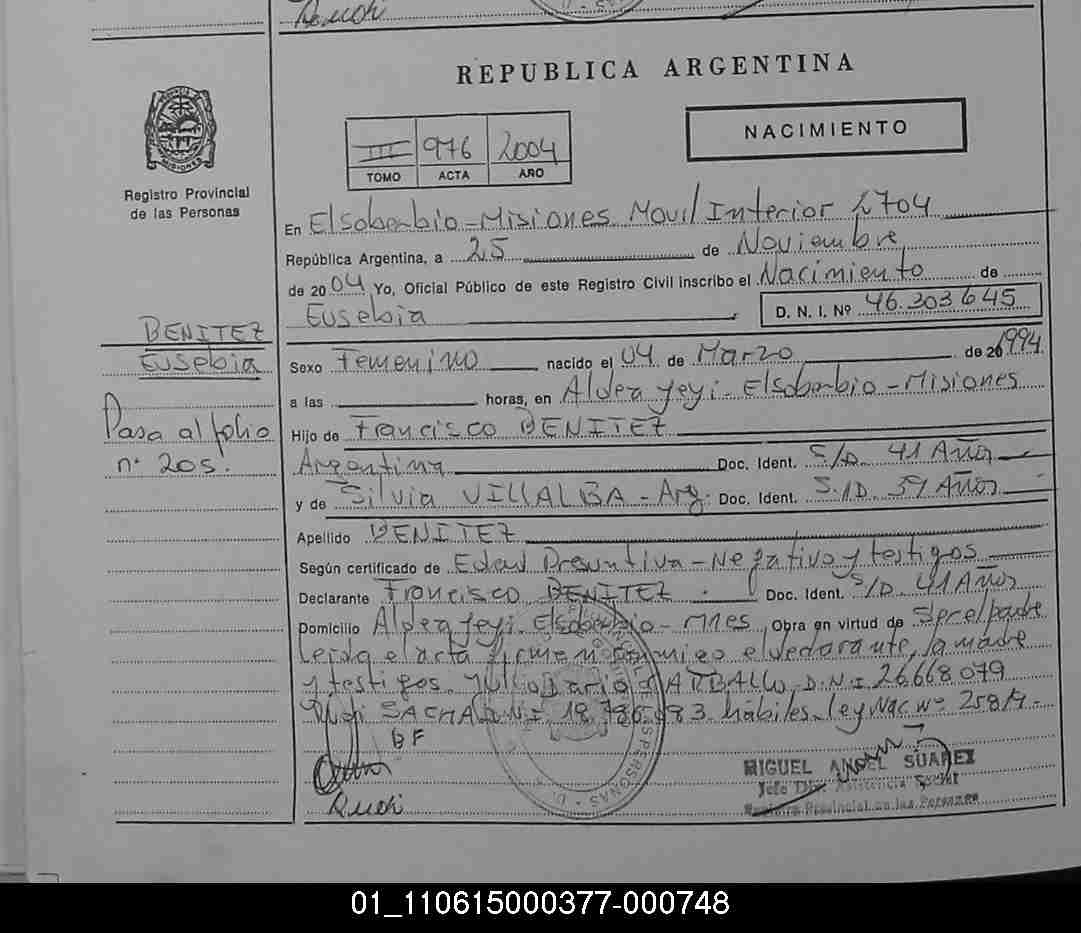 Rudi
REPUBLICA ARGENTINA
NACIMIENTO
III 976 2004
TOMO ACTA AÑO
Registro Provincial
de las Personas
En Elsoberbio - Misiones Movil Interior 2704
República Argentina, a 25 de Noviembre
de 2004 Yo, Oficial Público de este Registro Civil inscribo el Nacimiento de
Eusebia D. N. I. Nº 46.303.645
BENITEZ
Eusebia
Pasa al folio
nº 205.
Sexo Femenino nacido el 04 de Marzo de 20 1994
a las horas, en Aldea yeyi - Elsoberbio - Misiones
Hijo de Francisco BENITEZ
Argentina Doc. Ident. S/D. 41 Años
y de Silvia VILLALBA - Arg. Doc. Ident. S/D. 39 Años
Apellido BENITEZ
Según certificado de Edad Presuntiva - Negativo y testigos
Declarante Francisco BENITEZ Doc. Ident. S/D. 41 Años
Domicilio Aldea yeyi. Elsoberbio - Mnes Obra en virtud de
Leida el acta firmen conmigo el declarante, la madre
y testigos. D.N.I. 26.668.079
Rudi SACHA D.N.I. 18.786.693 hábiles. ley Nac Nº
BF
Rudi
MIGUEL ANGEL SUAREZ
Jefe Asistencia Social
Registro Provincial de las Personas
01_110615000377-000748